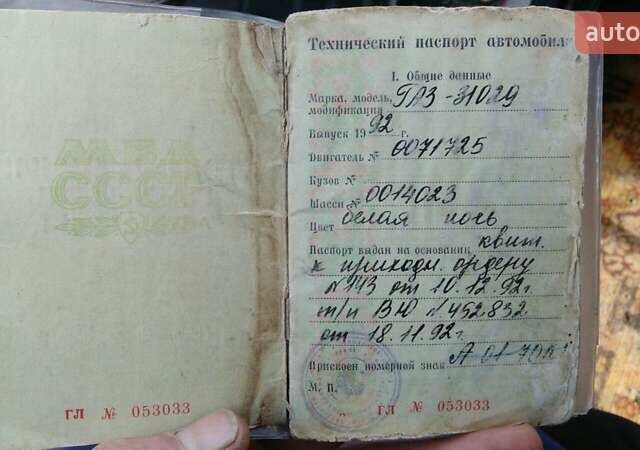 МВД
СССР
ГЛ № 053033
auto
Технический паспорт автомобиля
I. Общие данные
Марка, модель, ГАЗ-31029
модификация
Выпуск 1992 г.
Двигатель № 0071725
Кузов №
Шасси № 0014023
Цвет белая ночь
Паспорт выдан на основании квит.
к приходн. ордеру
№ 943 от 10.12.92г.
т/п ВЮ № 452832
от 18.11.92г.
Присвоен номерной знак А 01-70
М. П.
ГЛ № 053033